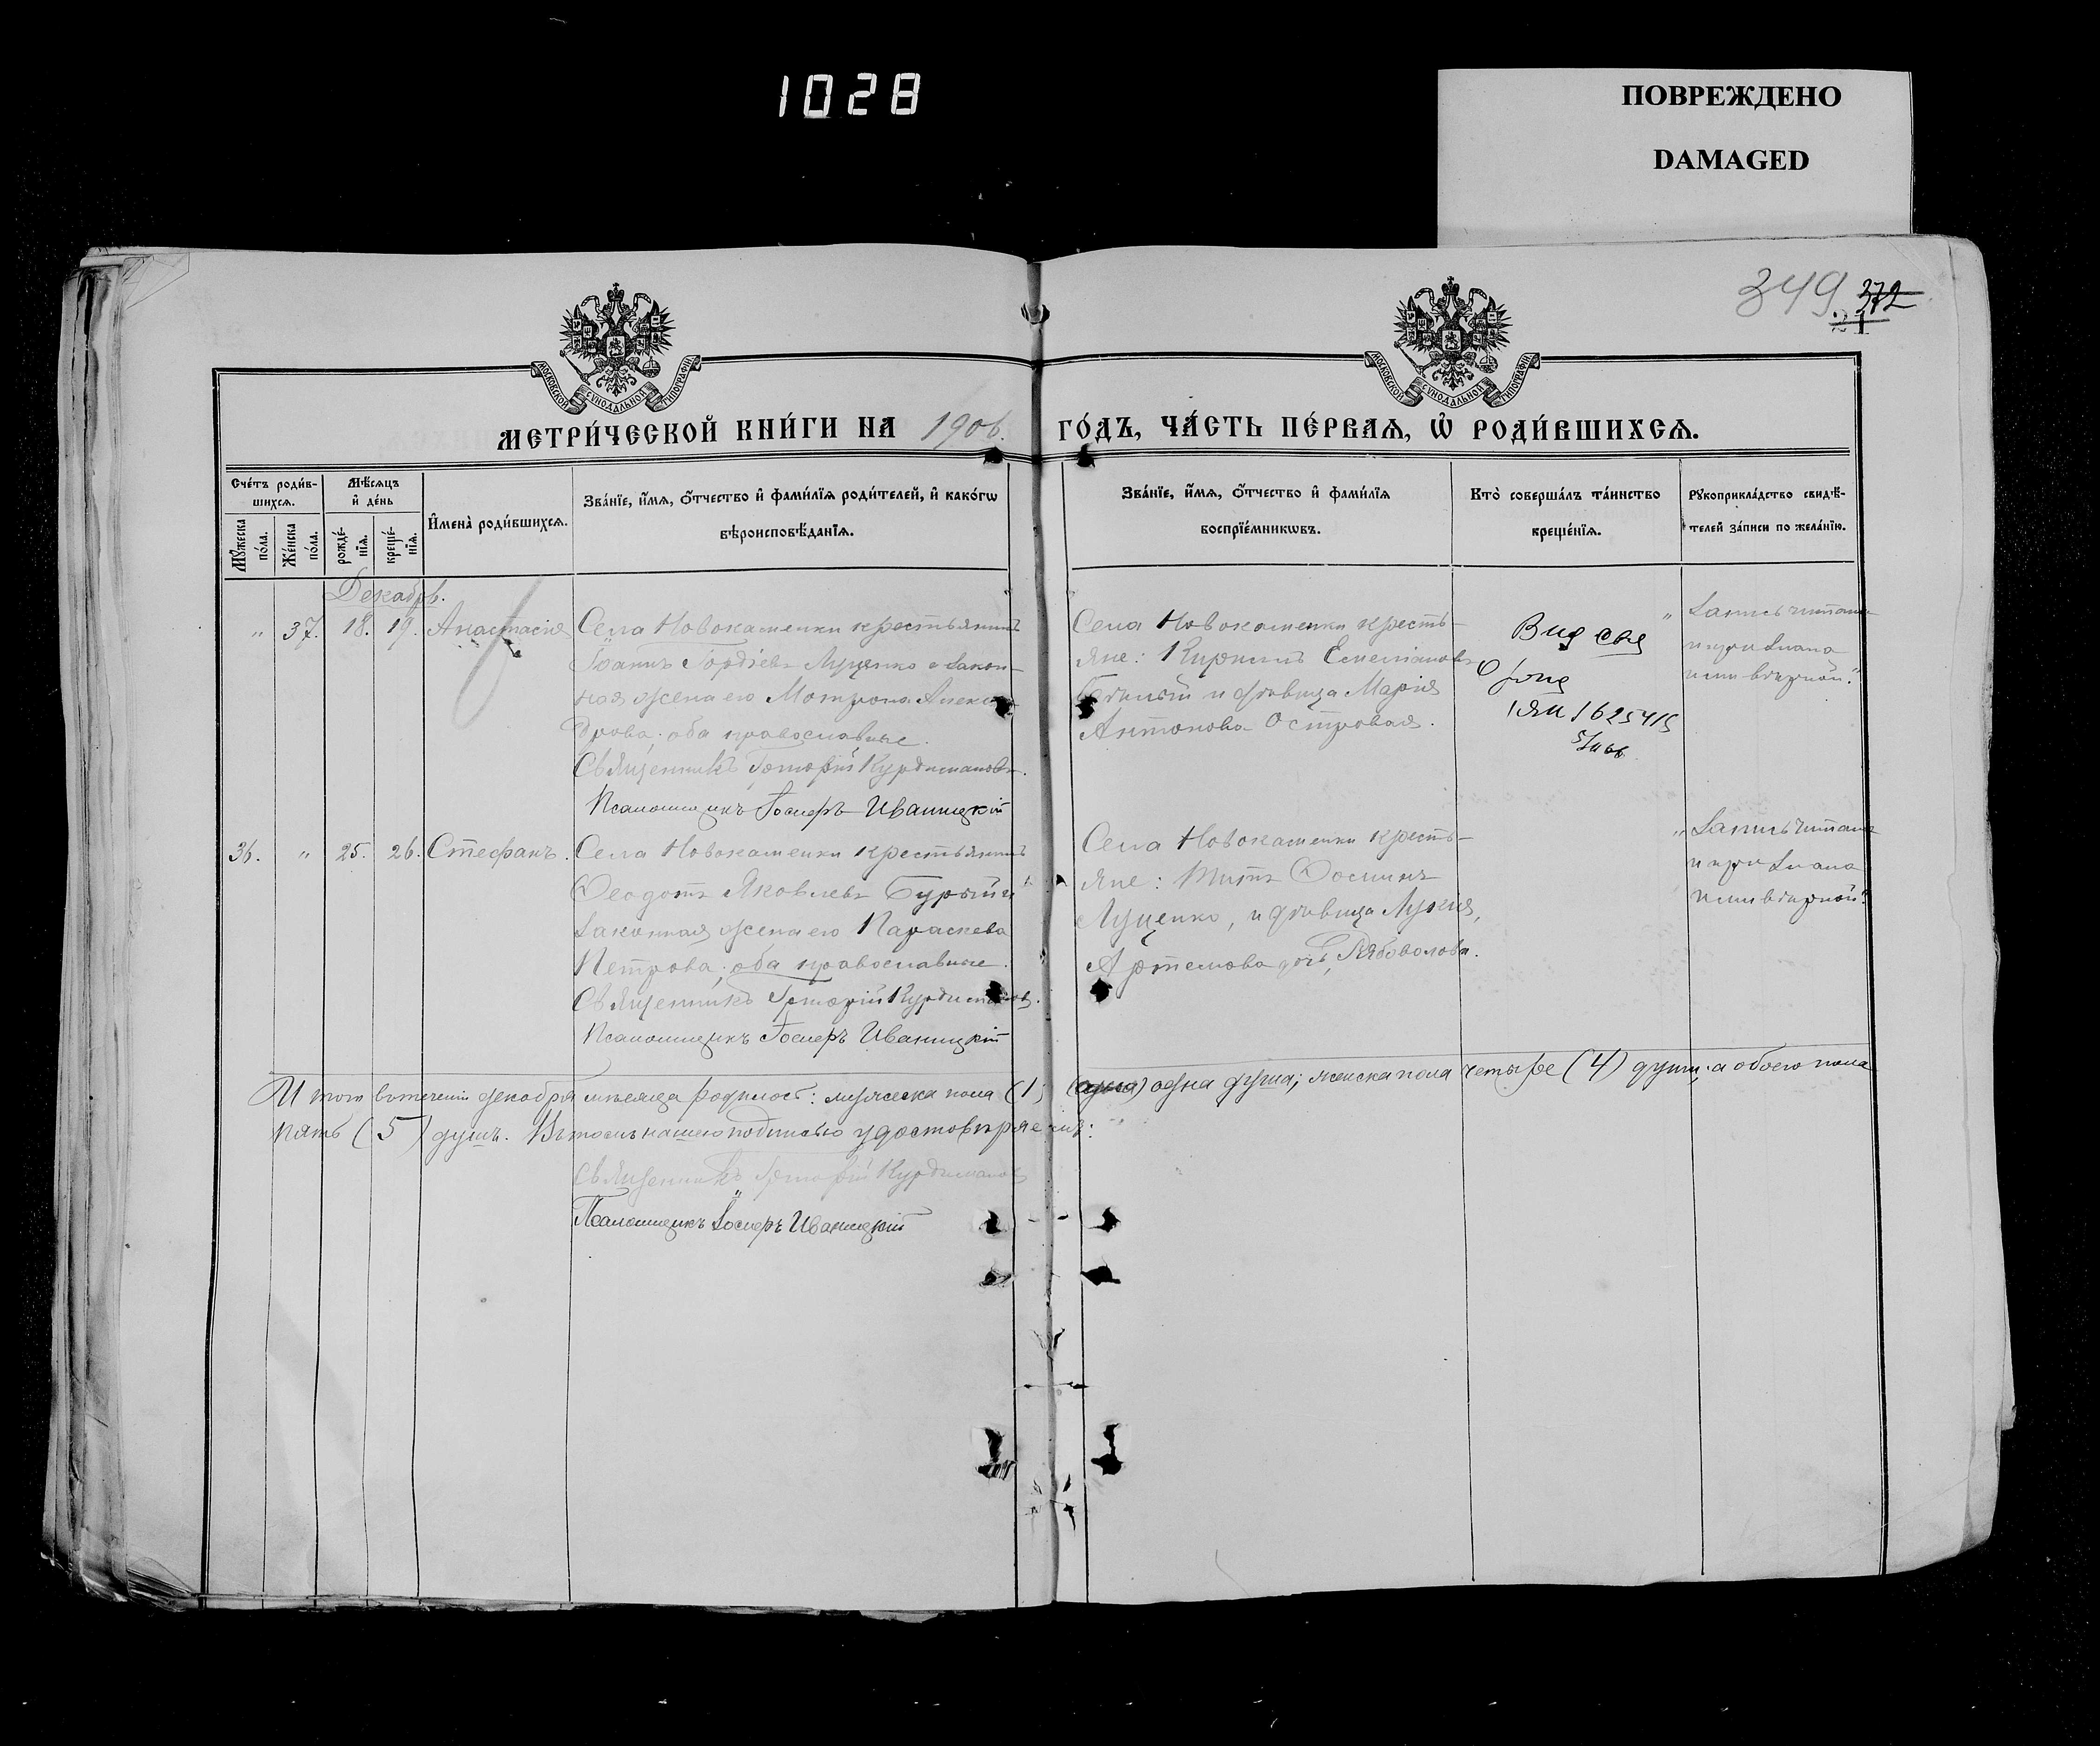 1028
ПОВРЕЖДЕНО
DAMAGED
349 372
МОСКОВСКОЙ СУНОДАЛЬНОЙ ТИПОГРАФІИ
МОСКОВСКОЙ СУНОДАЛЬНОЙ ТИПОГРАФІИ
МЕТРИ́ЧЕСКОЙ КНИ́ГИ НА 1906. ГО́ДЪ, ЧА́СТЬ ПЕ́РВАѦ, Ѽ РОДИ́ВШИХСѦ.
Сче́тъ роди́вшихсѧ.
Мꙋ́жеска по́ла.
Же́нска по́ла.
Мѣ́сѧцъ и҆ де́нь
рожде́нїѧ.
креще́нїѧ.
И҆мена̀ роди́вшихсѧ.
Зва́нїе, и҆́мѧ, ѻ҆́тчество и҆ фами́лїѧ роди́телей, и҆ како́гѡ
вѣроисповѣ́данїѧ.
Зва́нїе, и҆́мѧ, ѻ҆́тчество и҆ фами́лїѧ
воспрїе́мникѡвъ.
Кто̀ соверша́лъ та́инство
креще́нїѧ.
Рꙋкоприкла́дство свидѣ́-
телей за́писи по жела́нїю.
Декабрь.
" 37. 18. 19. Анастасія
Села Новокаменки крестьянинъ
Іоаннъ Гордіевъ Луценко и закон-
ная жена его Матрона Алексан
дрова; оба православные.
Священникъ Григорій Курдиманов.
Псаломщикъ Іосифъ Иваницкій
Села Новокаменки кресть-
яне: Кириллъ Емеліановъ
и дѣвица Марія
Антонова Островая.
Выд свид
1625415
" Запись читана
и признана
нами вѣрной."
36. " 25. 26. Стефанъ.
Села Новокаменки крестьянинъ
Ѳеодотъ Яковлевъ Бурый и
законная жена его Параскева
Петрова; оба православные.
Священникъ Григорій Курдиманов.
Псаломщикъ Іосифъ Иваницкій
Села Новокаменки кресть-
яне: Титъ Ѳоминъ
Луценко, и дѣвица Лукія,
Артемова дочь, Рябоволова.
" Запись читана
и признана
нами вѣрной."
Итого въ теченіи декабря мѣсяца родилось: мужеска пола (1) одна душа; женска пола четыре (4) души; а обоего пола
пять (5) душъ. Въ томъ нашею подписью удостовѣряемъ:
Священникъ Григорій Курдиманов
Псаломщикъ Іосифъ Иваницкій